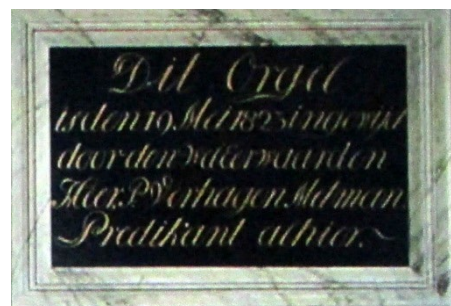 Dit Orgel
is den 19 Mei 1823 ingewijd
door den WelEerwaarden
Heer P. Verhagen Metman.
Predikant alhier.